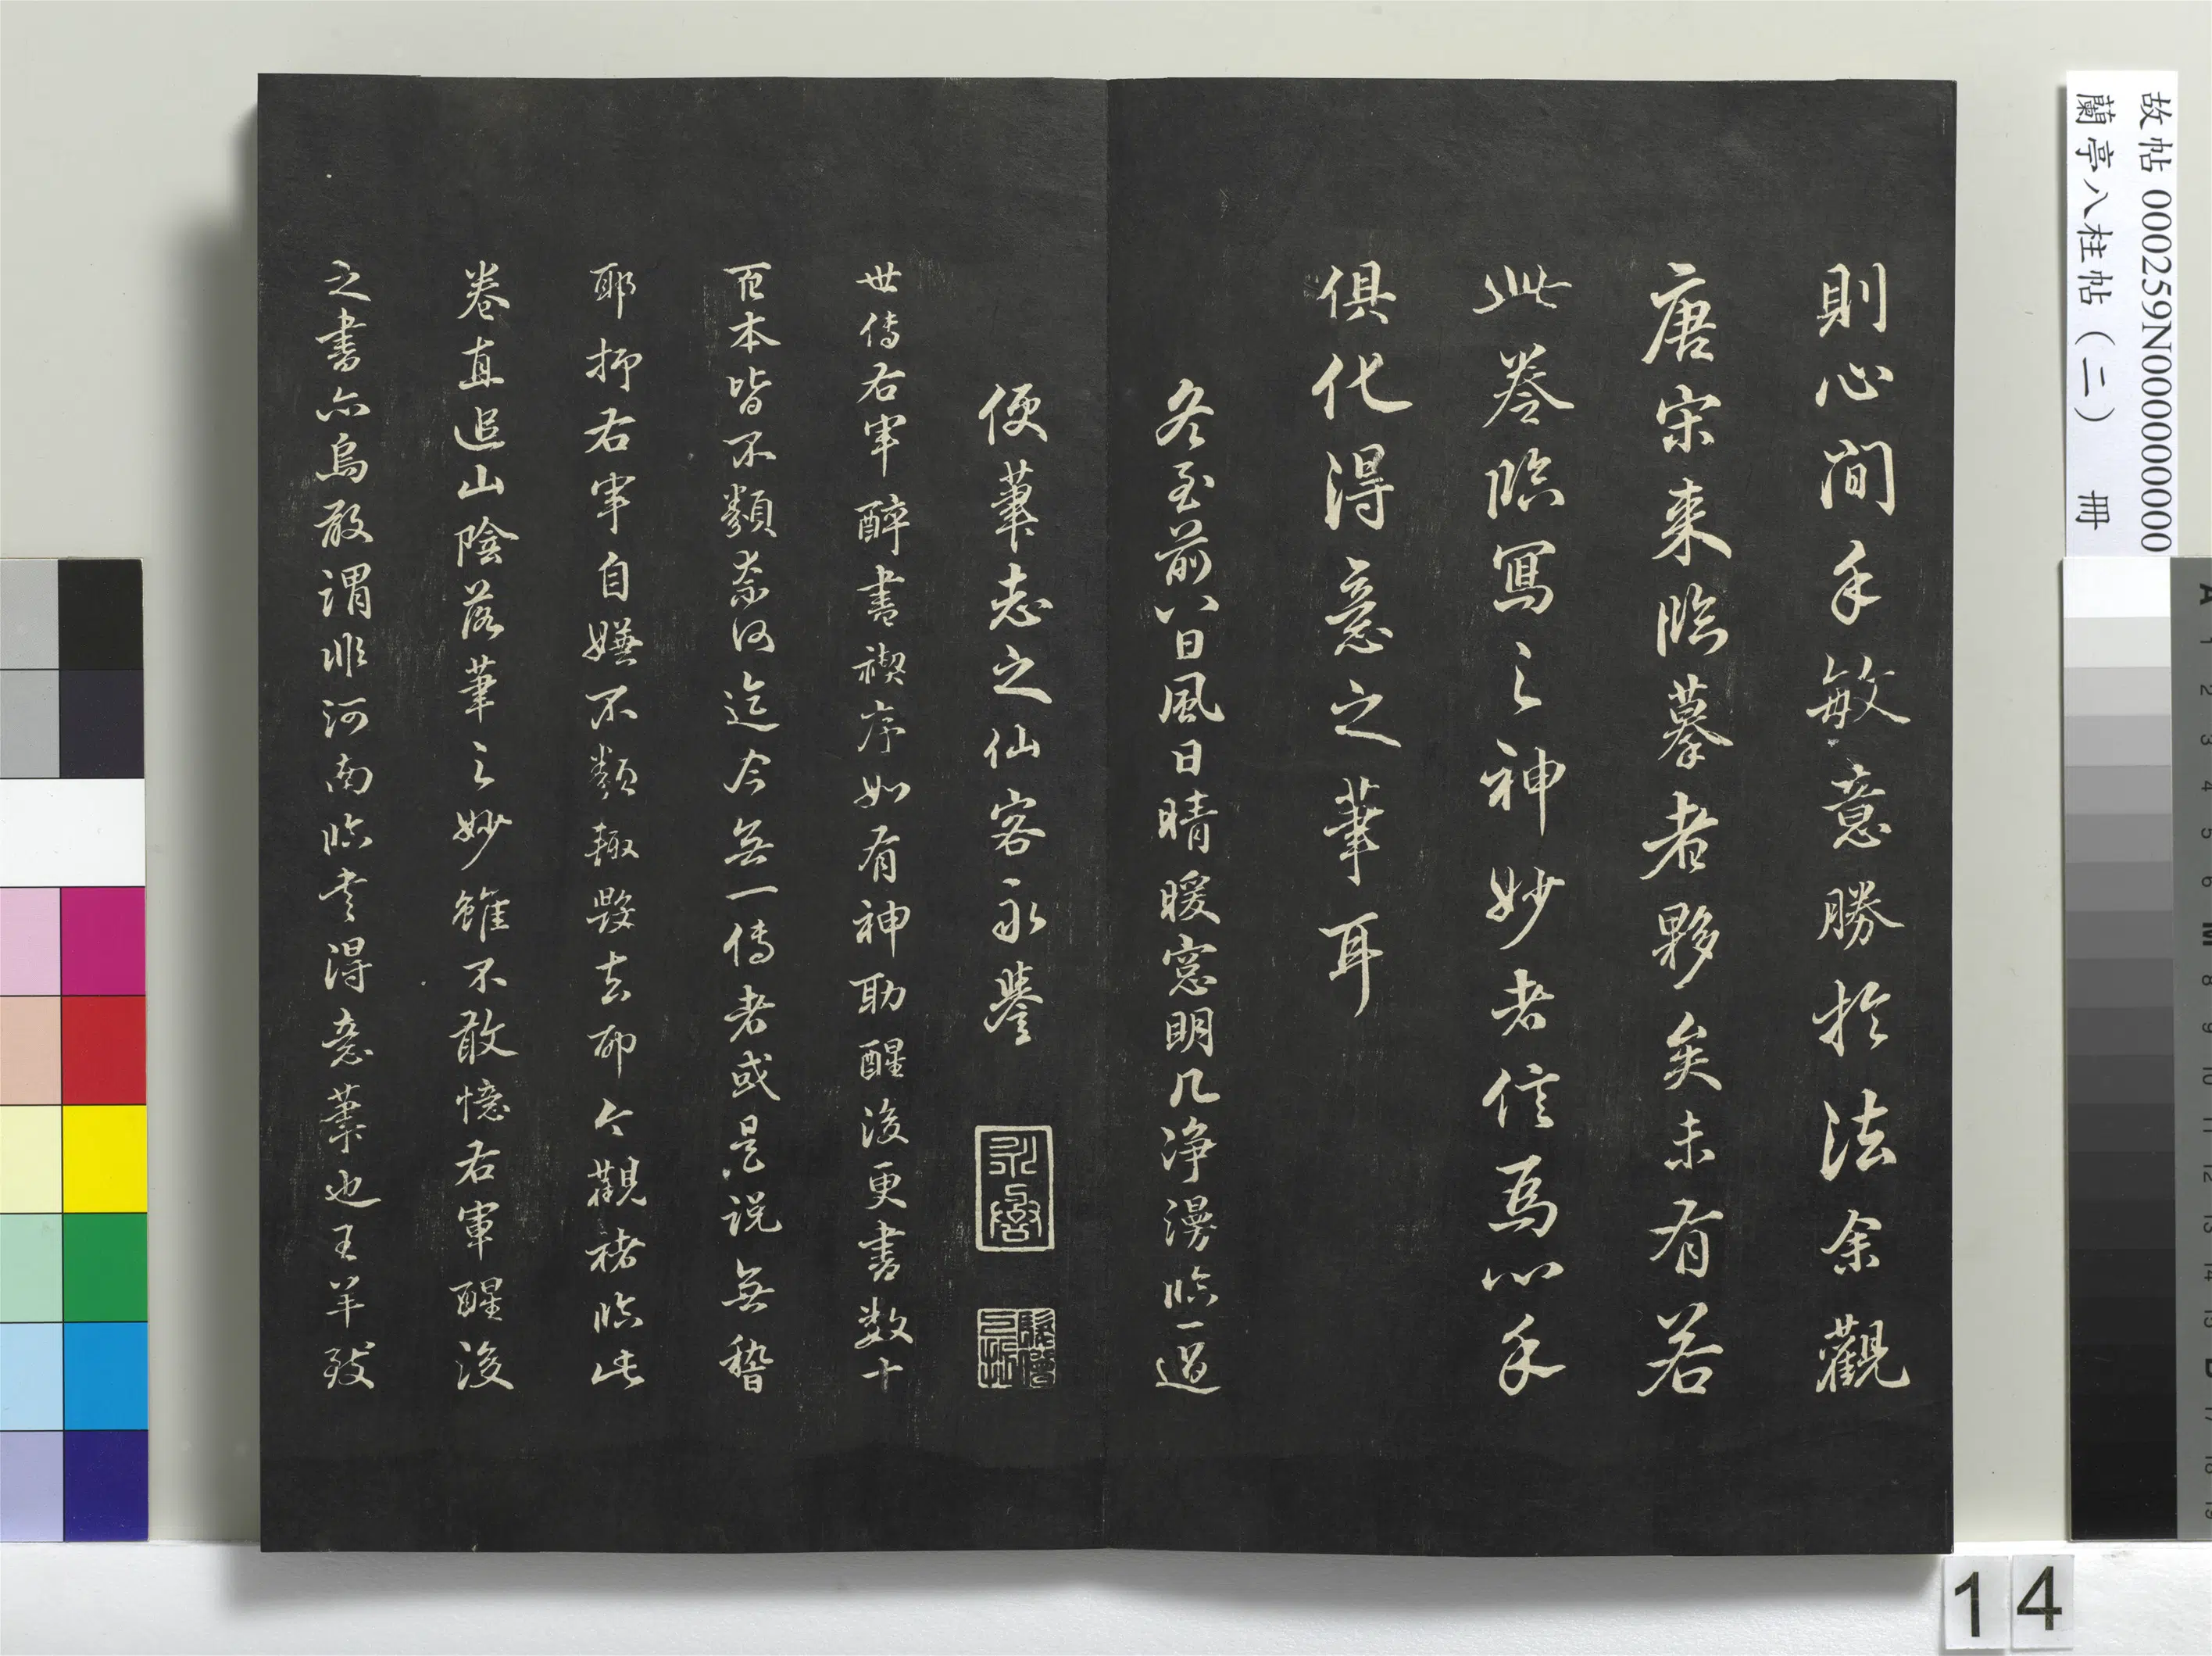 則心閒手敏意勝於法余觀
唐宋来臨摹者夥矣未有若
此卷臨寫之神妙者信為心手
俱化得意之筆耳
冬至前八日風日晴暖窓明几净漫臨一過
便筆志之仙客永瑩
世傳右軍醉書禊序如有神助醒後更書数十
百本皆不類奈何迄今無一傳者或是説無稽
耶抑右軍自嫌不類輙毀去耶今觀褚臨此
卷直追山陰落筆之妙雖不敢憶右軍醒後
之書亦烏敢謂非河南臨書得意筆也王羊致
故帖 000259N000000000
蘭亭八柱帖（二） 冊
14